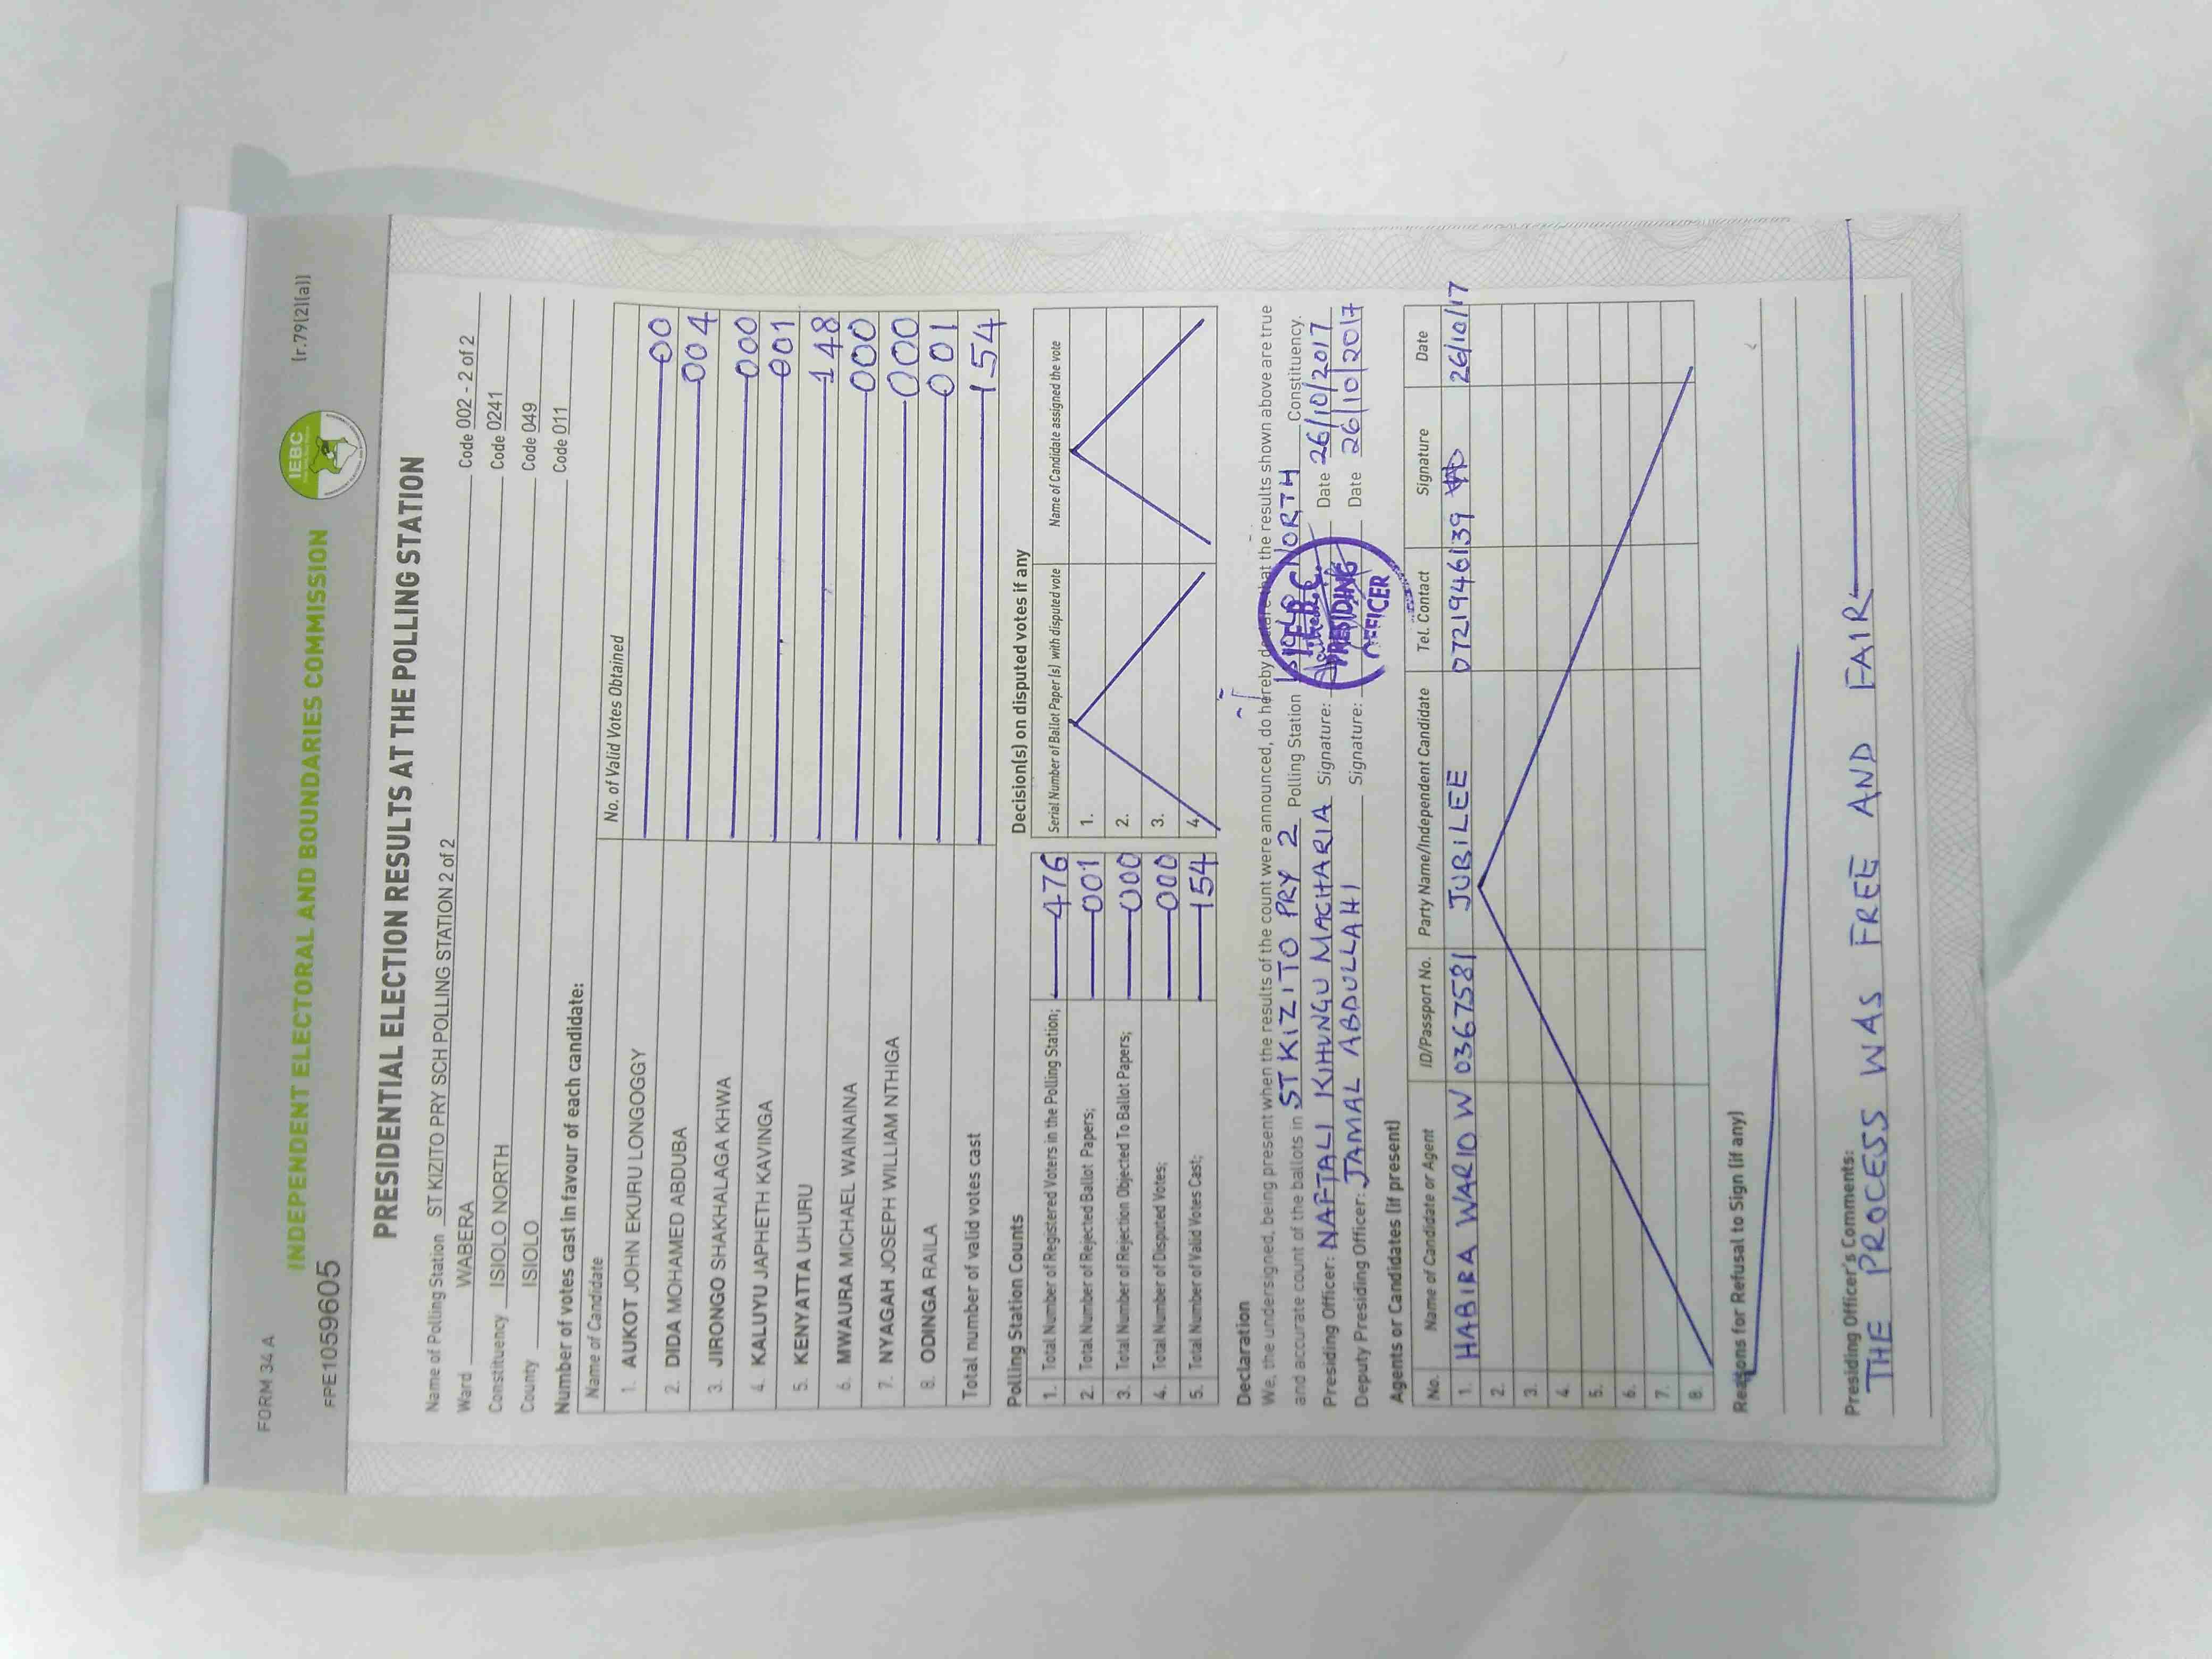 FORM 34 A
(r.79(2)(a))
IEBC
INDEPENDENT ELECTORAL AND BOUNDARIES COMMISSION
FPE1059605
PRESIDENTIAL ELECTION RESULTS AT THE POLLING STATION
Name of Polling Station ST KIZITO PRY SCH POLLING STATION 2 of 2 Code 002 - 2 of 2
Ward WABERA Code 0241
Constituency ISIOLO NORTH Code 049
County ISIOLO Code 011
Number of votes cast in favour of each candidate:
Name of Candidate No. of Valid Votes Obtained
1. AUKOT JOHN EKURU LONGOGGY 00
2. DIDA MOHAMED ABDUBA 004
3. JIRONGO SHAKHALAGA KHWA 000
4. KALUYU JAPHETH KAVINGA 001
5. KENYATTA UHURU 148
6. MWAURA MICHAEL WAINAINA 000
7. NYAGAH JOSEPH WILLIAM NTHIGA 000
8. ODINGA RAILA 001
Total number of valid votes cast 154
Polling Station Counts
1. Total Number of Registered Voters in the Polling Station; 476
2. Total Number of Rejected Ballot Papers; 001
3. Total Number of Rejection Objected To Ballot Papers; 000
4. Total Number of Disputed Votes; 000
5. Total Number of Valid Votes Cast; 154
Decision(s) on disputed votes if any
Serial Number of Ballot Paper(s) with disputed vote Name of Candidate assigned the vote
1.
2.
3.
4.
Declaration
We, the undersigned, being present when the results of the count were announced, do hereby declare that the results shown above are true
and accurate count of the ballots in ST KIZITO PRY 2 Polling Station ISIOLO NORTH Constituency.
Presiding Officer: NAFTALI KIHUNGU MACHARIA Signature: Date 26/10/2017
Deputy Presiding Officer: JAMAL ABDULLAHI Signature: Date 26/10/2017
IEBC
PRESIDING
OFFICER
Agents or Candidates (if present)
No. Name of Candidate or Agent ID/Passport No. Party Name/Independent Candidate Tel. Contact Signature Date
1. HABIRA WARIO W 03667581 JUBILEE 0721946139 26/10/17
2.
3.
4.
5.
6.
7.
8.
Reasons for Refusal to Sign (if any)
Presiding Officer's Comments:
THE PROCESS WAS FREE AND FAIR